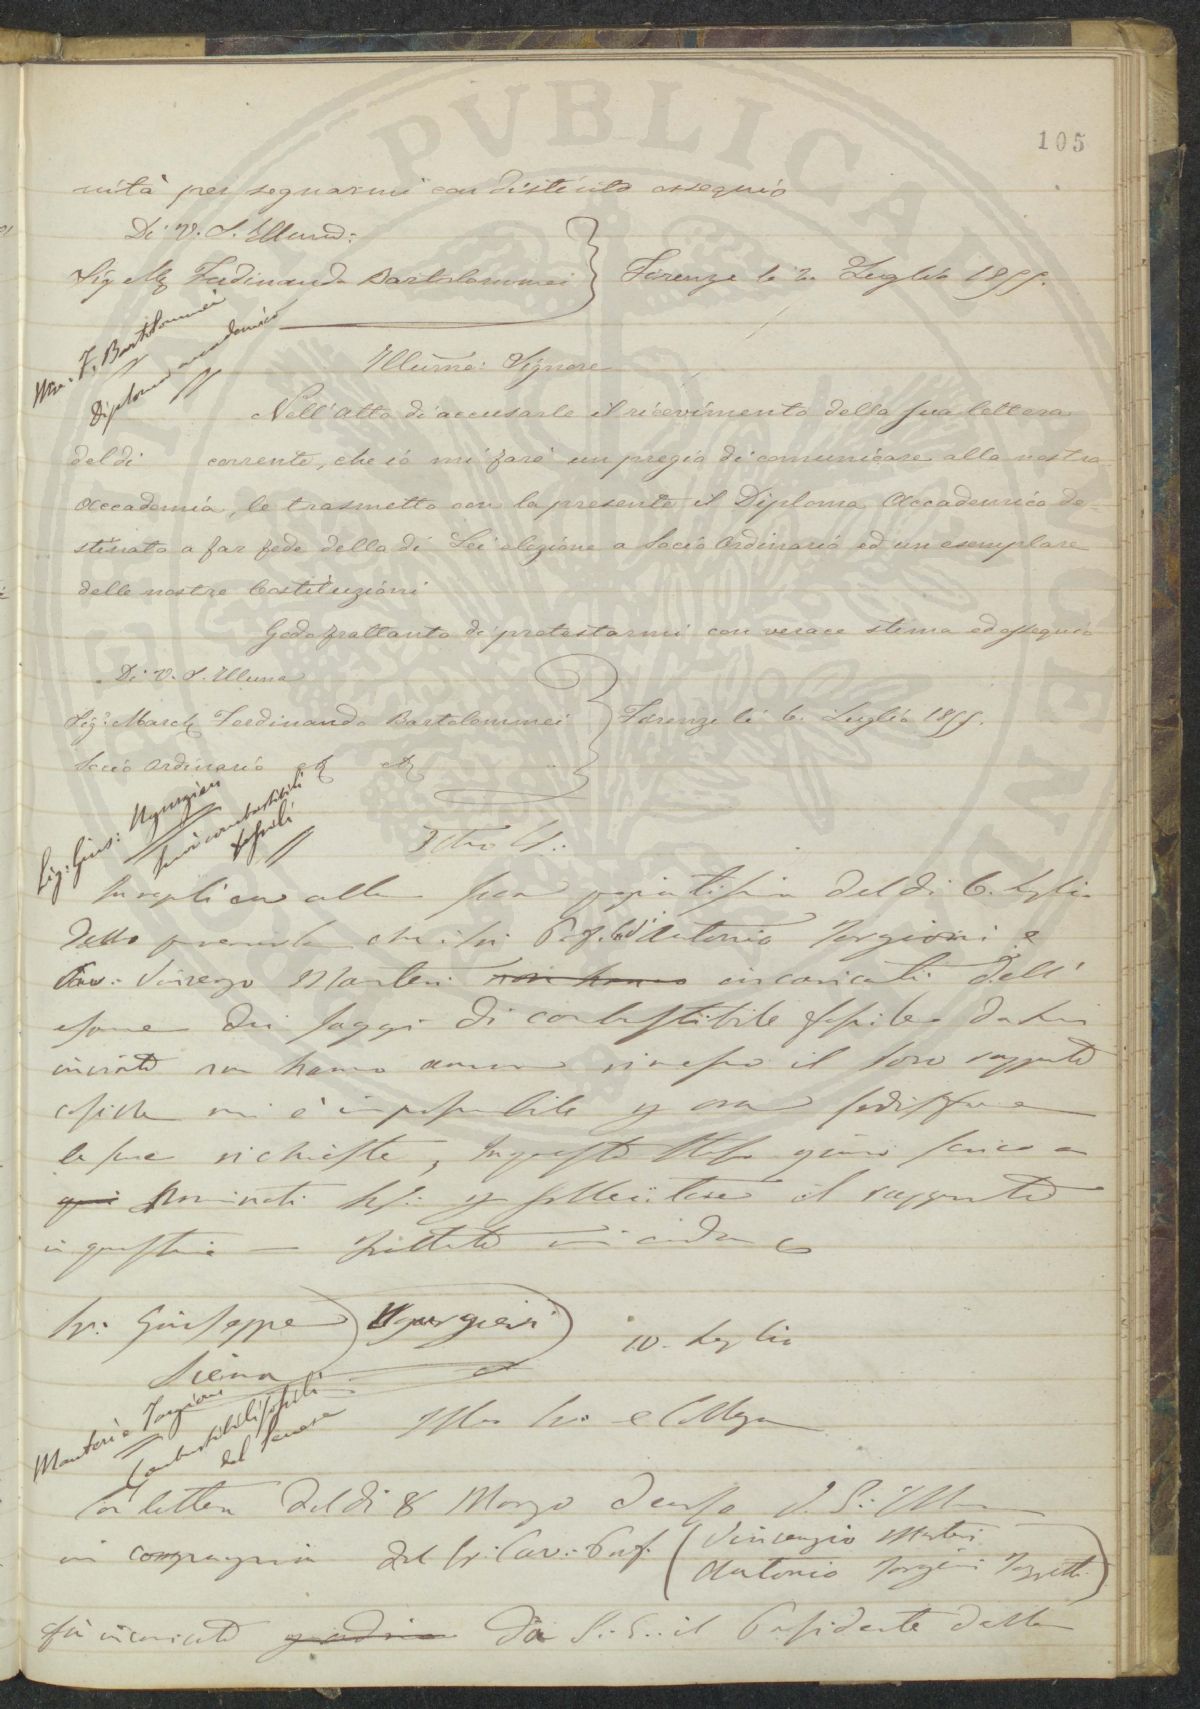 105
nità per segnarmi con distinto ossequio
Di V. S. Illma:
Sig Mse Ferdinando Bartolommei
Firenze li 2. Luglio 1855.
Mse: F. Bartolommei
Diploma accademico
Illumo: Signore
Nell'atto di accusarle il ricevimento della sua lettera
del dì corrente, che io mi farò un pregio di comunicare alla nostra
Accademia, le trasmetto con la presente il Diploma Accademico de-
stinato a far fede della di Lei elezione a Socio Ordinario ed un esemplare
delle nostre Costituzioni
Godo frattanto di protestarmi con verace stima ed ossequio
Di V. S. Illuma
Sigr. March Ferdinando Bartolommei
Firenze li 6. Luglio 1855.
Socio Ordinario
Sig: Gius: Ugurgieri
Suoi combustibili
fossili
In replica alla sua del dì 6. Luglio
che i Sri Prof. Antonio Targioni e
Cav: Vincenzo Manteri non hanno incaricati dell'
esame dei saggi di combustibile fossile da Lei
inviati non hanno ancora rimesso il loro rapporto
cosicché mi è impossibile per ora sodisfare
le sue richieste, in questo stesso giorno scrivo a
nominati per sollecitare il rapporto
in questione
Sr: Giuseppe Ugurgieri
Siena
10. Luglio
Manteri e Targioni
Combustibili fossili
del Senese
Illmo Sre e Collega
Con lettera del dì 8 Marzo decorso V. S: Illma
in compagnia del Sr: Cav: Prof. Vincenzio Manteri
Antonio Targioni Tozzetti
fù incaricato da S: E: il Presidente della